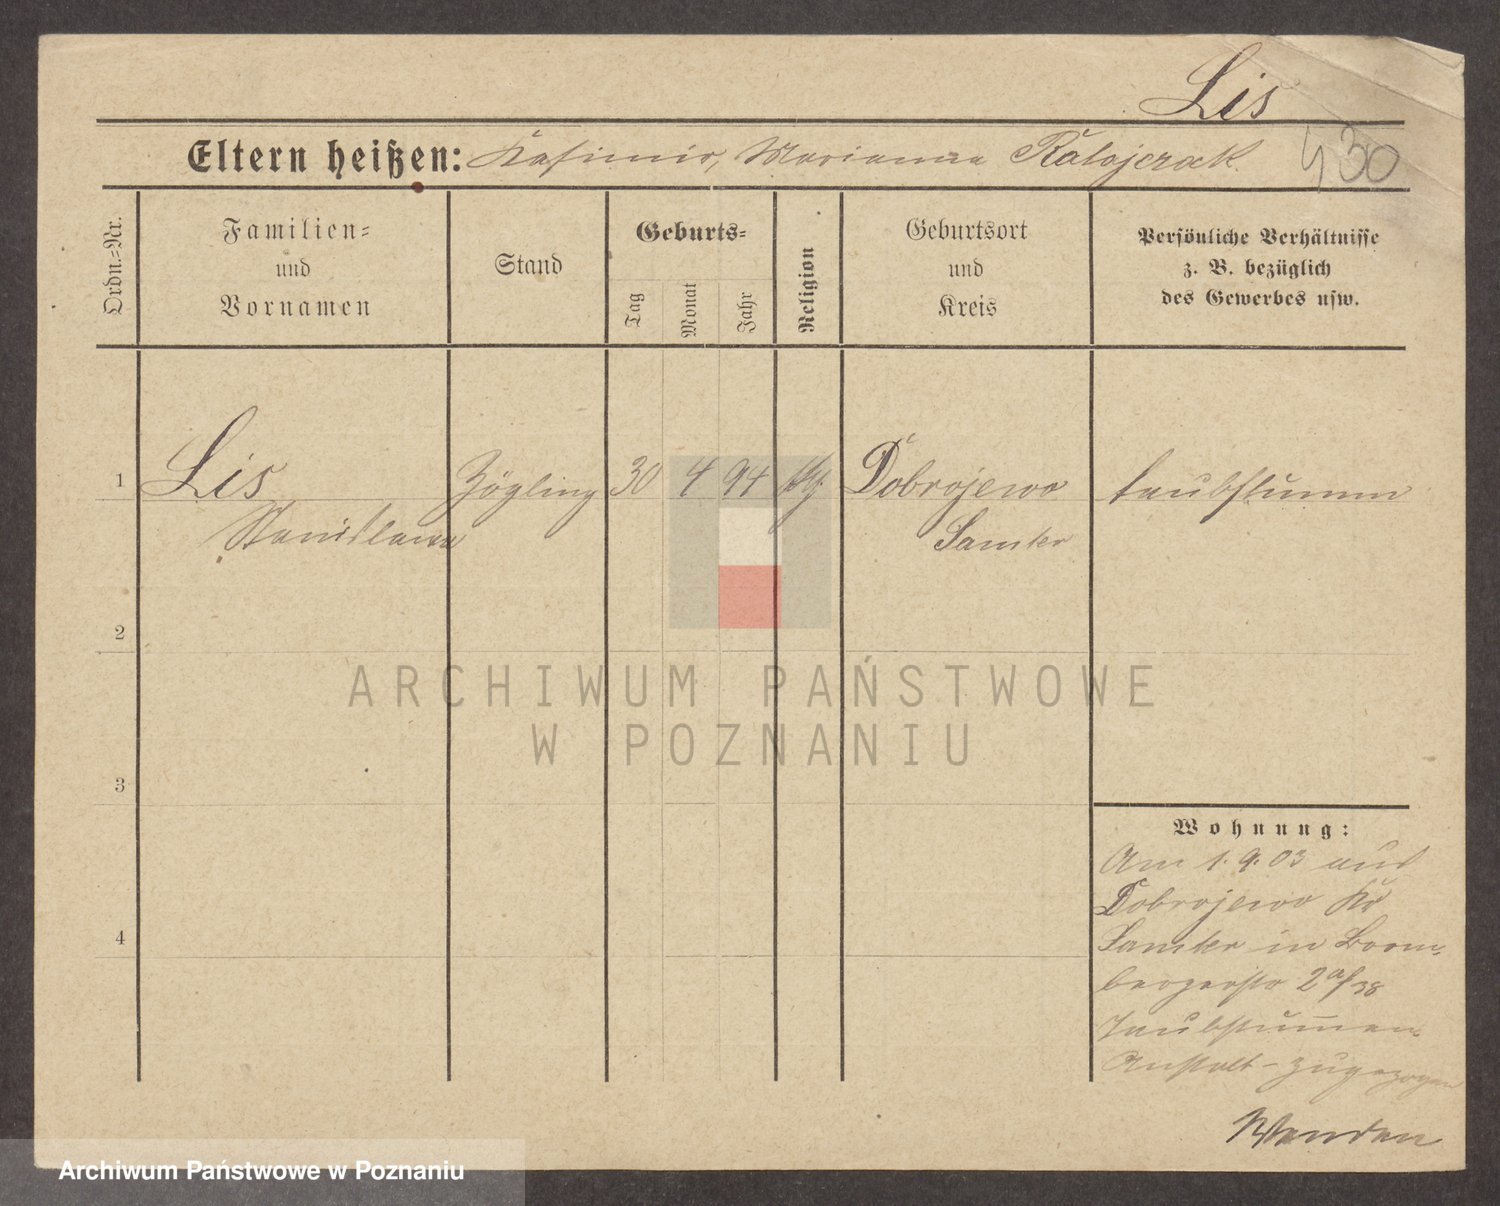 Lis
Eltern heißen: Kasimir, Marianna Ratajczak
430
Ordn.-Nr.
Familien-
und
Vornamen
Stand
Geburts-
Tag
Monat
Jahr
Religion
Geburtsort
und
Kreis
Persönliche Verhältnisse
z. B. bezüglich
des Gewerbes usw.
1 Lis Zögling 30 4 94 Dobrojewo taubstumm
Stanislawa Samter
2
3
4
ARCHIWUM PAŃSTWOWE
W POZNANIU
Wohnung:
Am 1.9.03 aus
Dobrojewo Kr
Samter in Brom-
bergerstr 2a/38
Taubstummen
Anstalt - zugezogen
Wenden
Archiwum Państwowe w Poznaniu